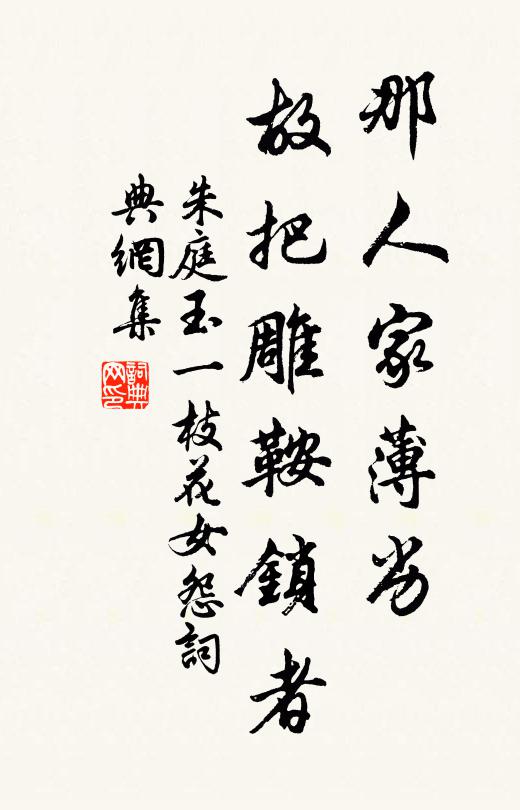 那人家薄劣
故把雕鞍鎖者
朱庭玉一枝花女怨詞
典網集
詞典
网印